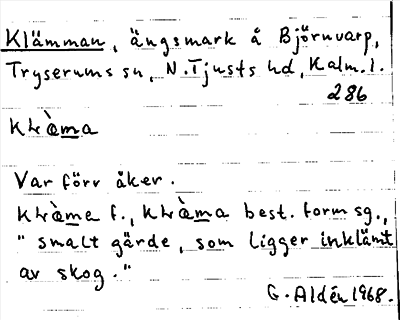 Klämman, ängsmark å Björnvarp,
Tryserums sn, N. Tjusts hd, Kalm. l.
286
Var förr åker.
f., best. form sg.,
" smalt gärde, som ligger inklämt
av skog."
G. Aldén 1968.